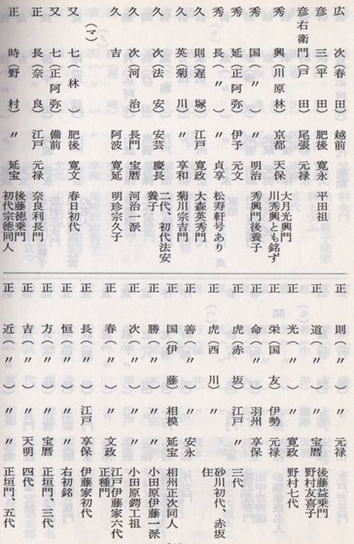 広次(春田)越前
彦三(平田)肥後 寛永 平田祖
彦右衛門(戸田)尾張 元禄
秀興(川原林)京都 天保 大月光興門 川秀興とも銘ず
秀国(〃)〃 明治 秀興門後養子
秀延(正阿弥)伊予 元文
秀長(〃)〃 貞享 松寿軒号あり
久則(遅塚)江戸 寛政 大森英秀門
久英(菊川)〃 享和 菊川宗吉門
久次(法安)安芸 慶長 二代、初代法安養子
久次(河治)長門 宝暦 河治一派
久吉 阿波 寛延 明珍宗久子
(マ)
又七(林)肥後 寛文 春日初代
又七(正阿弥)備前
正長(奈良)江戸 元禄 奈良利長門
正時(野村)〃 延宝 後藤徳乗門 初代宗徳同人
正則(〃)〃 元禄
正道(〃)〃 宝暦 後藤益乗門 野村友喜子
正光(〃)〃 寛政 野村七代
正栄(国友)伊勢 元禄
正命(〃)羽州 享保
正虎(赤坂)江戸 〃 三代
正虎(西川)〃 砂川初代、赤坂住
正善(〃)〃 安永
正国(伊藤)相模 延宝 相州正次同人
正勝(〃)〃 〃 小田原伊藤一派
正次(〃)〃 〃 小田原鐔工祖
正春(〃)〃 文政 江戸伊藤家六代 正種門
正長(〃)江戸 享保 伊藤家初代
正恒(〃)〃 〃 右初銘
正方(〃)〃 宝暦 正垣門、三代
正吉(〃)〃 天明 四代
正近(〃)〃 〃 正垣門、五代